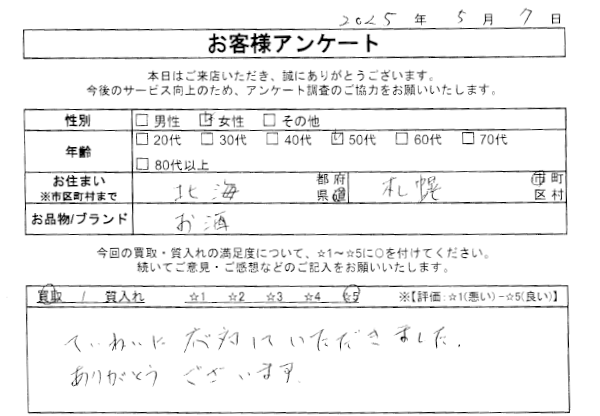 2025 年 5 月 7 日
お客様アンケート
本日はご来店いただき、誠にありがとうございます。
今後のサービス向上のため、アンケート調査のご協力をお願いいたします。
性別 □ 男性 ☑ 女性 □ その他
年齢 □ 20代 □ 30代 □ 40代 ☑ 50代 □ 60代 □ 70代
□ 80代以上
お住まい ※市区町村まで 北海 都 府 県 道 札幌 市 町 区 村
お品物/ブランド お酒
今回の買取・質入れの満足度について、☆1～☆5に○を付けてください。
続いてご意見・ご感想などのご記入をお願いいたします。
買取 / 質入れ ☆1 ☆2 ☆3 ☆4 ☆5 ※【評価:☆1(悪い)-☆5(良い)】
ていねいに応対していただきました.
ありがとうございます.